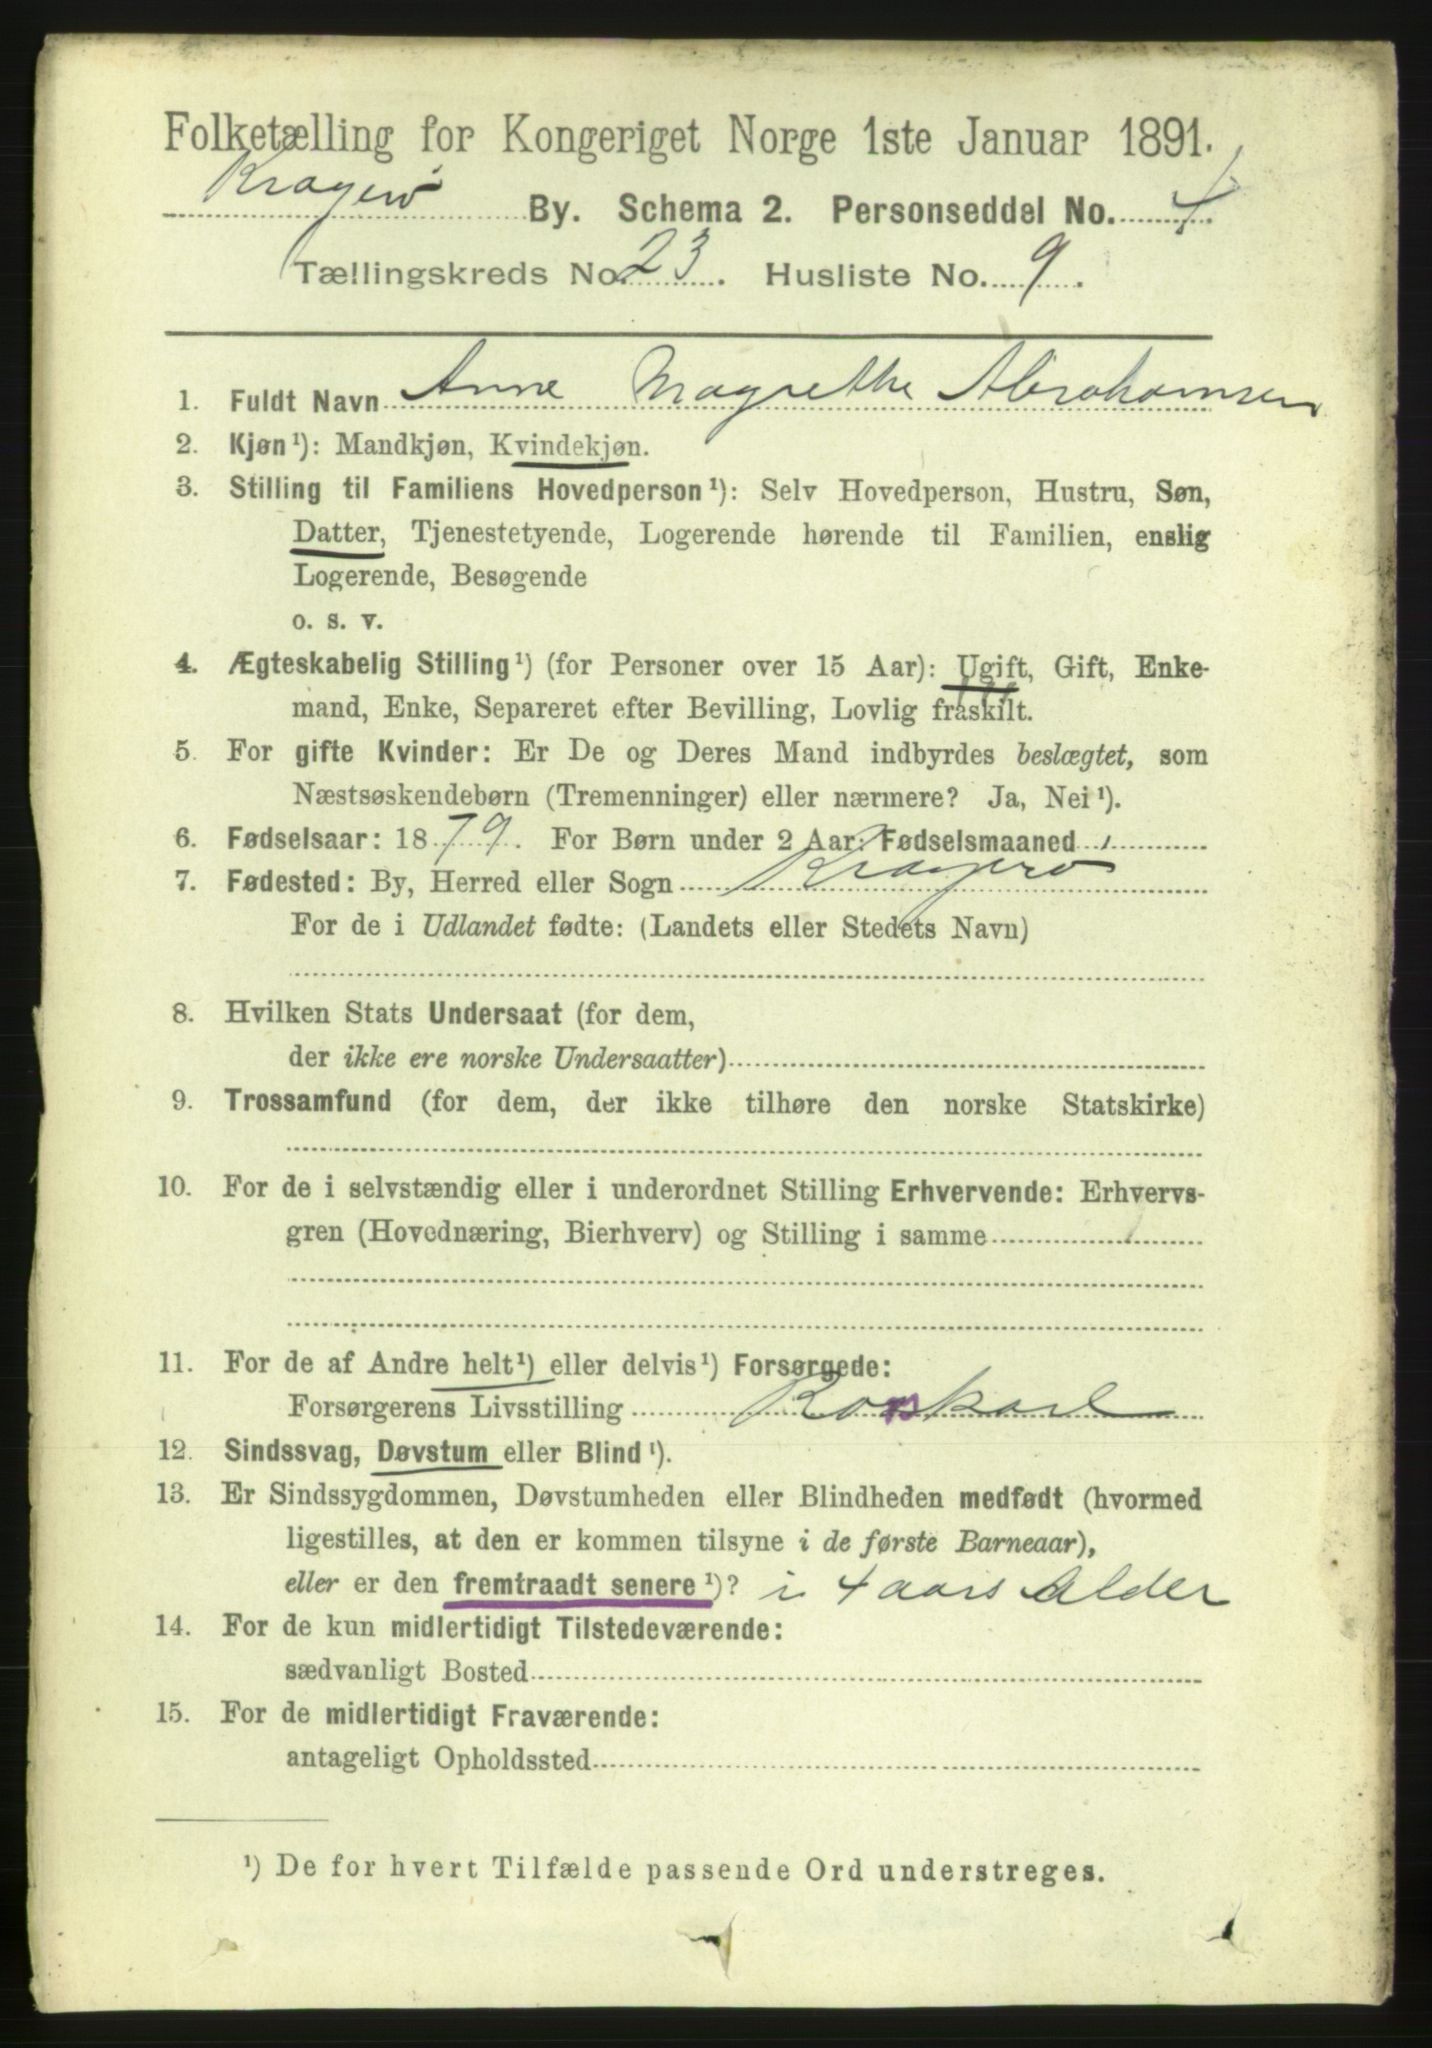 Folketælling for Kongeriget Norge 1ste Januar 1891.
Kragerö By. Schema 2. Personseddel No. 4
Tællingskreds No. 23. Husliste No. 9.
1. Fuldt Navn Anne Magrethe Abrahamsen
2. Kjøn¹): Mandkjøn, Kvindekjøn.
3. Stilling til Familiens Hovedperson¹): Selv Hovedperson, Hustru, Søn,
Datter, Tjenestetyende, Logerende hørende til Familien, enslig
Logerende, Besøgende
o. s. v.
4. Ægteskabelig Stilling¹) (for Personer over 15 Aar): Ugift, Gift, Enke-
mand, Enke, Separeret efter Bevilling, Lovlig fraskilt.
5. For gifte Kvinder: Er De og Deres Mand indbyrdes beslægtet, som
Næstsøskendebørn (Tremenninger) eller nærmere? Ja, Nei¹).
6. Fødselsaar: 1879. For Børn under 2 Aar: Fødselsmaaned
7. Fødested: By, Herred eller Sogn Kragerø
For de i Udlandet fødte: (Landets eller Stedets Navn)
8. Hvilken Stats Undersaat (for dem,
der ikke ere norske Undersaatter)
9. Trossamfund (for dem, der ikke tilhøre den norske Statskirke)
10. For de i selvstændig eller i underordnet Stilling Erhvervende: Erhvervs-
gren (Hovednæring, Bierhverv) og Stilling i samme
11. For de af Andre helt¹) eller delvis¹) Forsørgede:
Forsørgerens Livsstilling Rorskarl
12. Sindssvag, Døvstum eller Blind¹).
13. Er Sindssygdommen, Døvstumheden eller Blindheden medfødt (hvormed
ligestilles, at den er kommen tilsyne i de første Barneaar),
eller er den fremtraadt senere¹)? i 4 aars Alder
14. For de kun midlertidigt Tilstedeværende:
sædvanligt Bosted
15. For de midlertidigt Fraværende:
antageligt Opholdssted
¹) De for hvert Tilfælde passende Ord understreges.